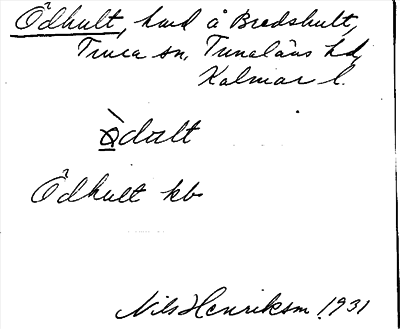 Ödhult, hmd å Bredshult,
Tuna sn, Tunaläns hd,
Kalmar l.
ödult
Ödhult kb
Nils Henriksson 1931